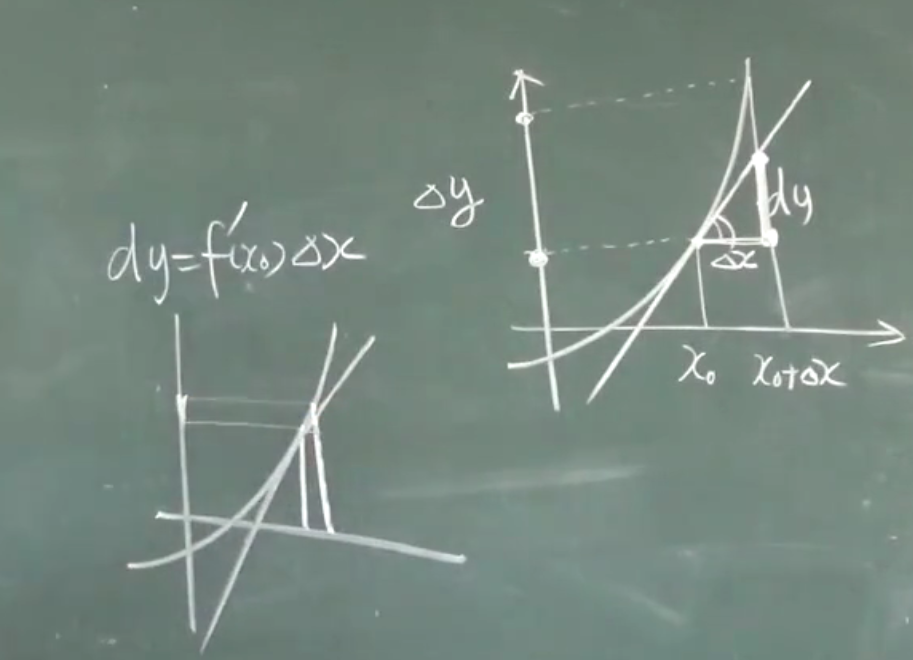 dy=f'(x₀)Δx
Δy
dy
Δx
x₀
x₀+Δx